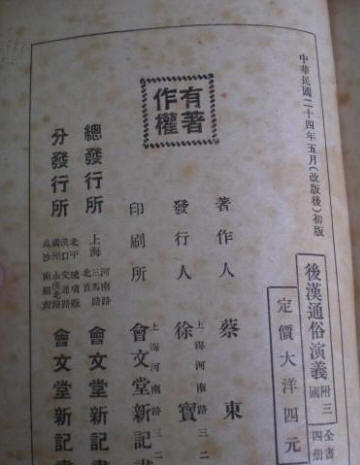 中華民國二十四年五月(改版後)初版
後漢通俗演義
附三國
全書四册
定價大洋四元
著作人 蔡東
發行人 徐寶
上海河南路三二
印刷所 會文堂新記書
上海河南路三二
有著作權
總發行所 上海 河南路 三馬路 北首 會文堂新記書
分發行所 北平 漢口 廣州 長沙 琉璃廠 交通路 永漢北路 南陽街 會文堂新記書